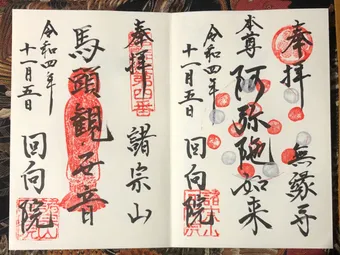 奉拝
無縁寺
本尊
阿弥陀如来
令和四年
十一月五日
回向院
奉拝
諸宗山
馬頭観世音
令和四年
十一月五日
回向院